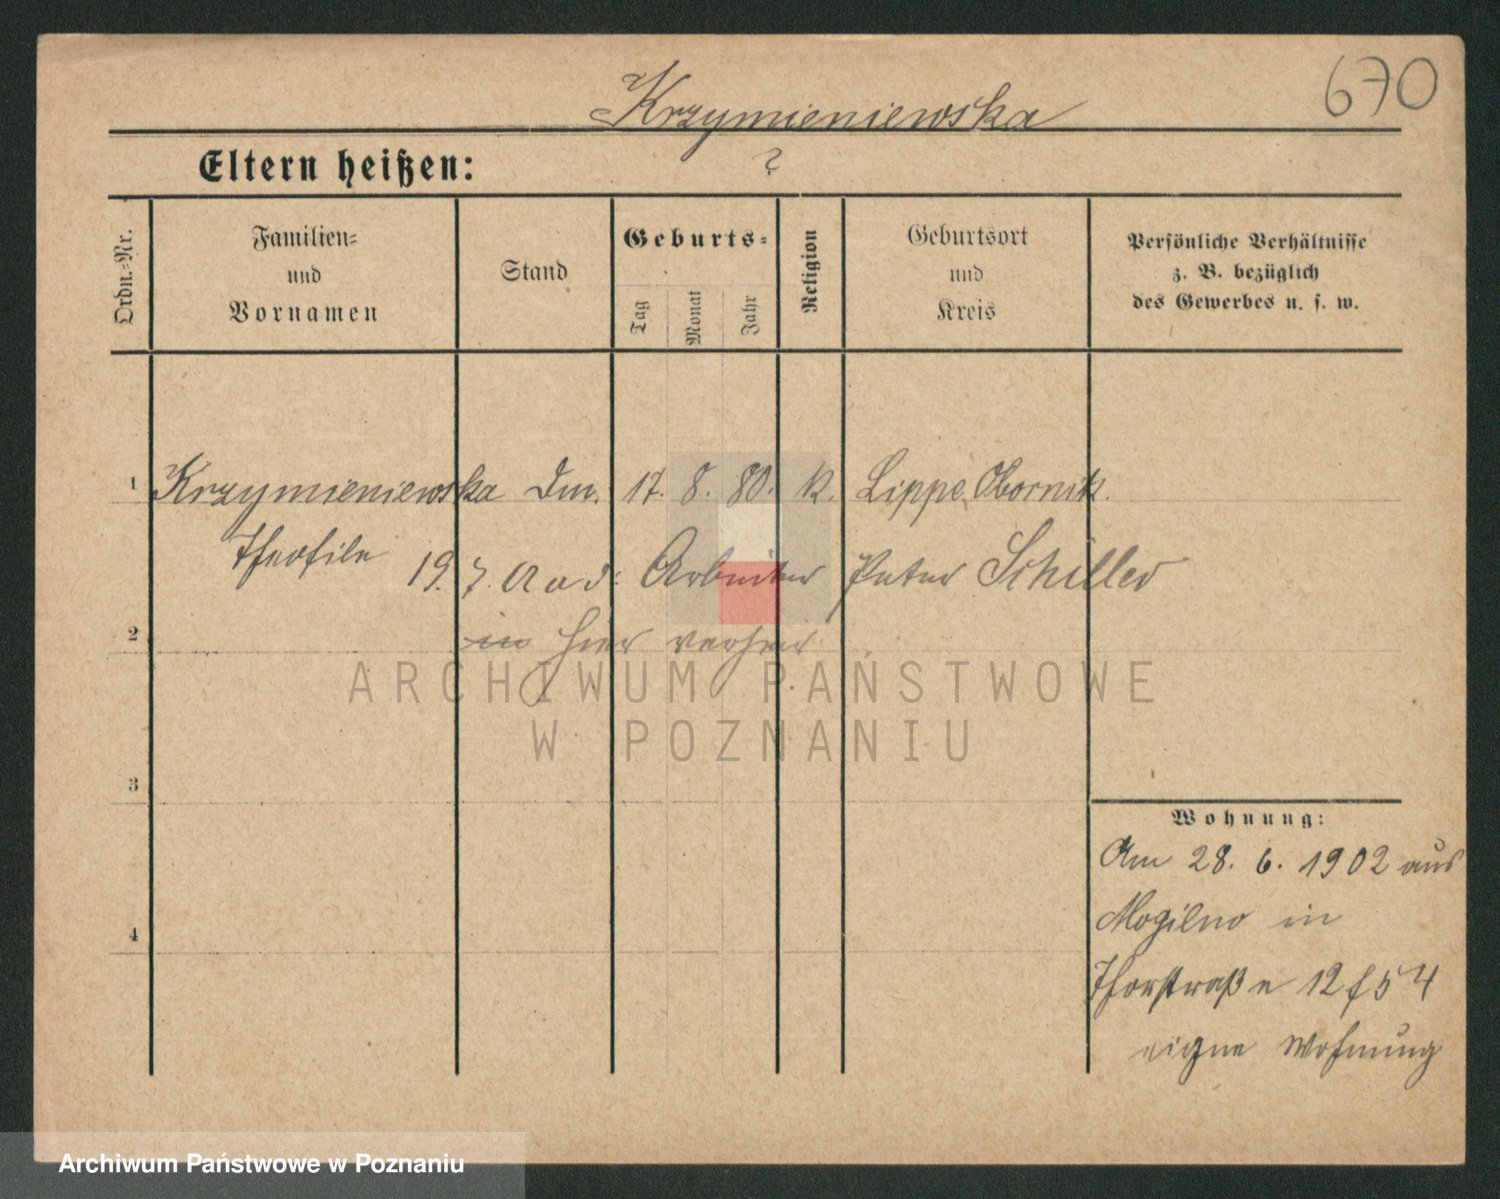 670
Krzymieniewska
Eltern heißen: ?
Ordn.-Nr.
Familien-
und
Vornamen
Stand
Geburts-
Tag
Monat
Jahr
Religion
Geburtsort
und
Kreis
Persönliche Verhältnisse
z. B. bezüglich
des Gewerbes u. s. w.
1 Krzymieniewska Dm. 17. 8. 80. K. Lippe Obornik.
Theofile 19. 7. Arbeiter Peter Schiller
2 in hier verher
3
Wohnung:
Am 28. 6. 1902 aus
4 Mogilno in
Thorstraße 12 54
eigne Wohnung
ARCHIWUM PAŃSTWOWE
W POZNANIU
Archiwum Państwowe w Poznaniu